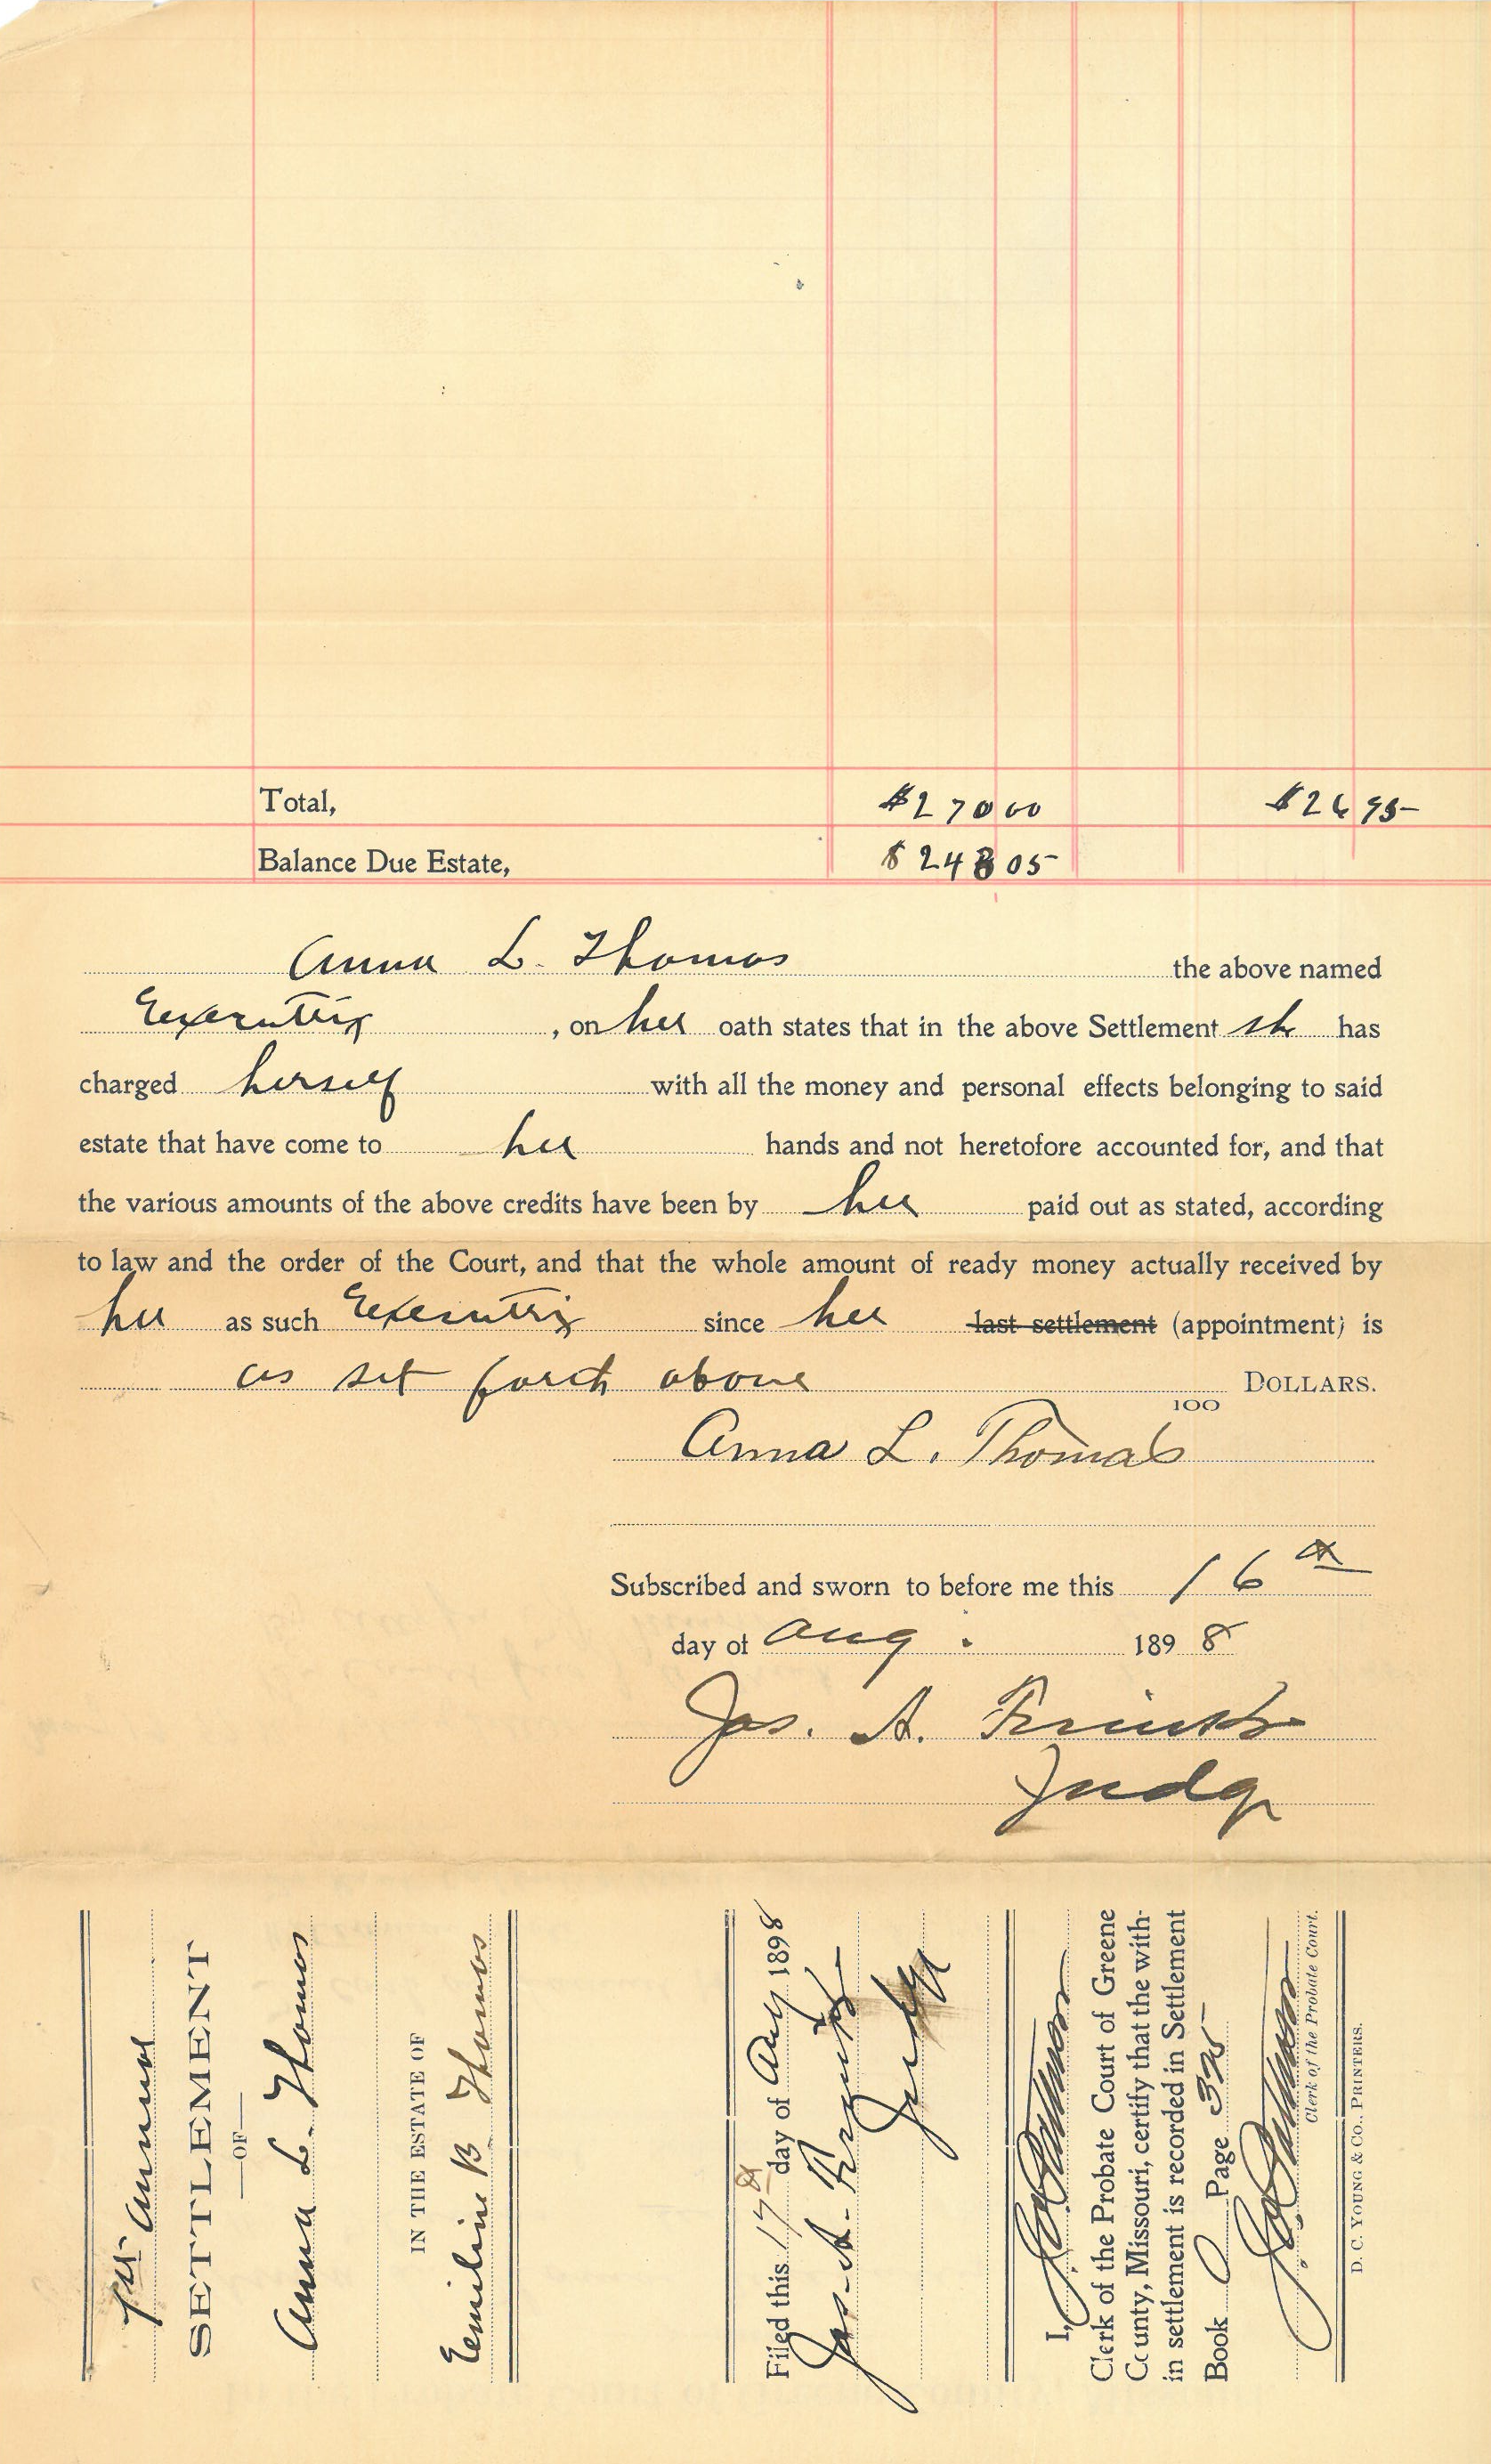 Total, $270 00 $26 95
Balance Due Estate, $243 05
Anna L. Thomas the above named
Executrix, on her oath states that in the above Settlement she has
charged herself with all the money and personal effects belonging to said
estate that have come to her hands and not heretofore accounted for, and that
the various amounts of the above credits have been by her paid out as stated, according
to law and the order of the Court, and that the whole amount of ready money actually received by
her as such Executrix since her last settlement (appointment) is
as set forth above DOLLARS.
100
Anna L. Thomas
Subscribed and sworn to before me this 16th
day of Aug. 1898
Jas. A.
Judge
1st Annual
SETTLEMENT
—OF—
Anna L. Thomas
IN THE ESTATE OF
Emiline B. Thomas
Filed this 17th day of Aug 1898
Jas. A.
Judge
I,
Clerk of the Probate Court of Greene
County, Missouri, certify that the with-
in settlement is recorded in Settlement
Book O Page 325
Clerk of the Probate Court.
D. C. YOUNG & CO., PRINTERS.